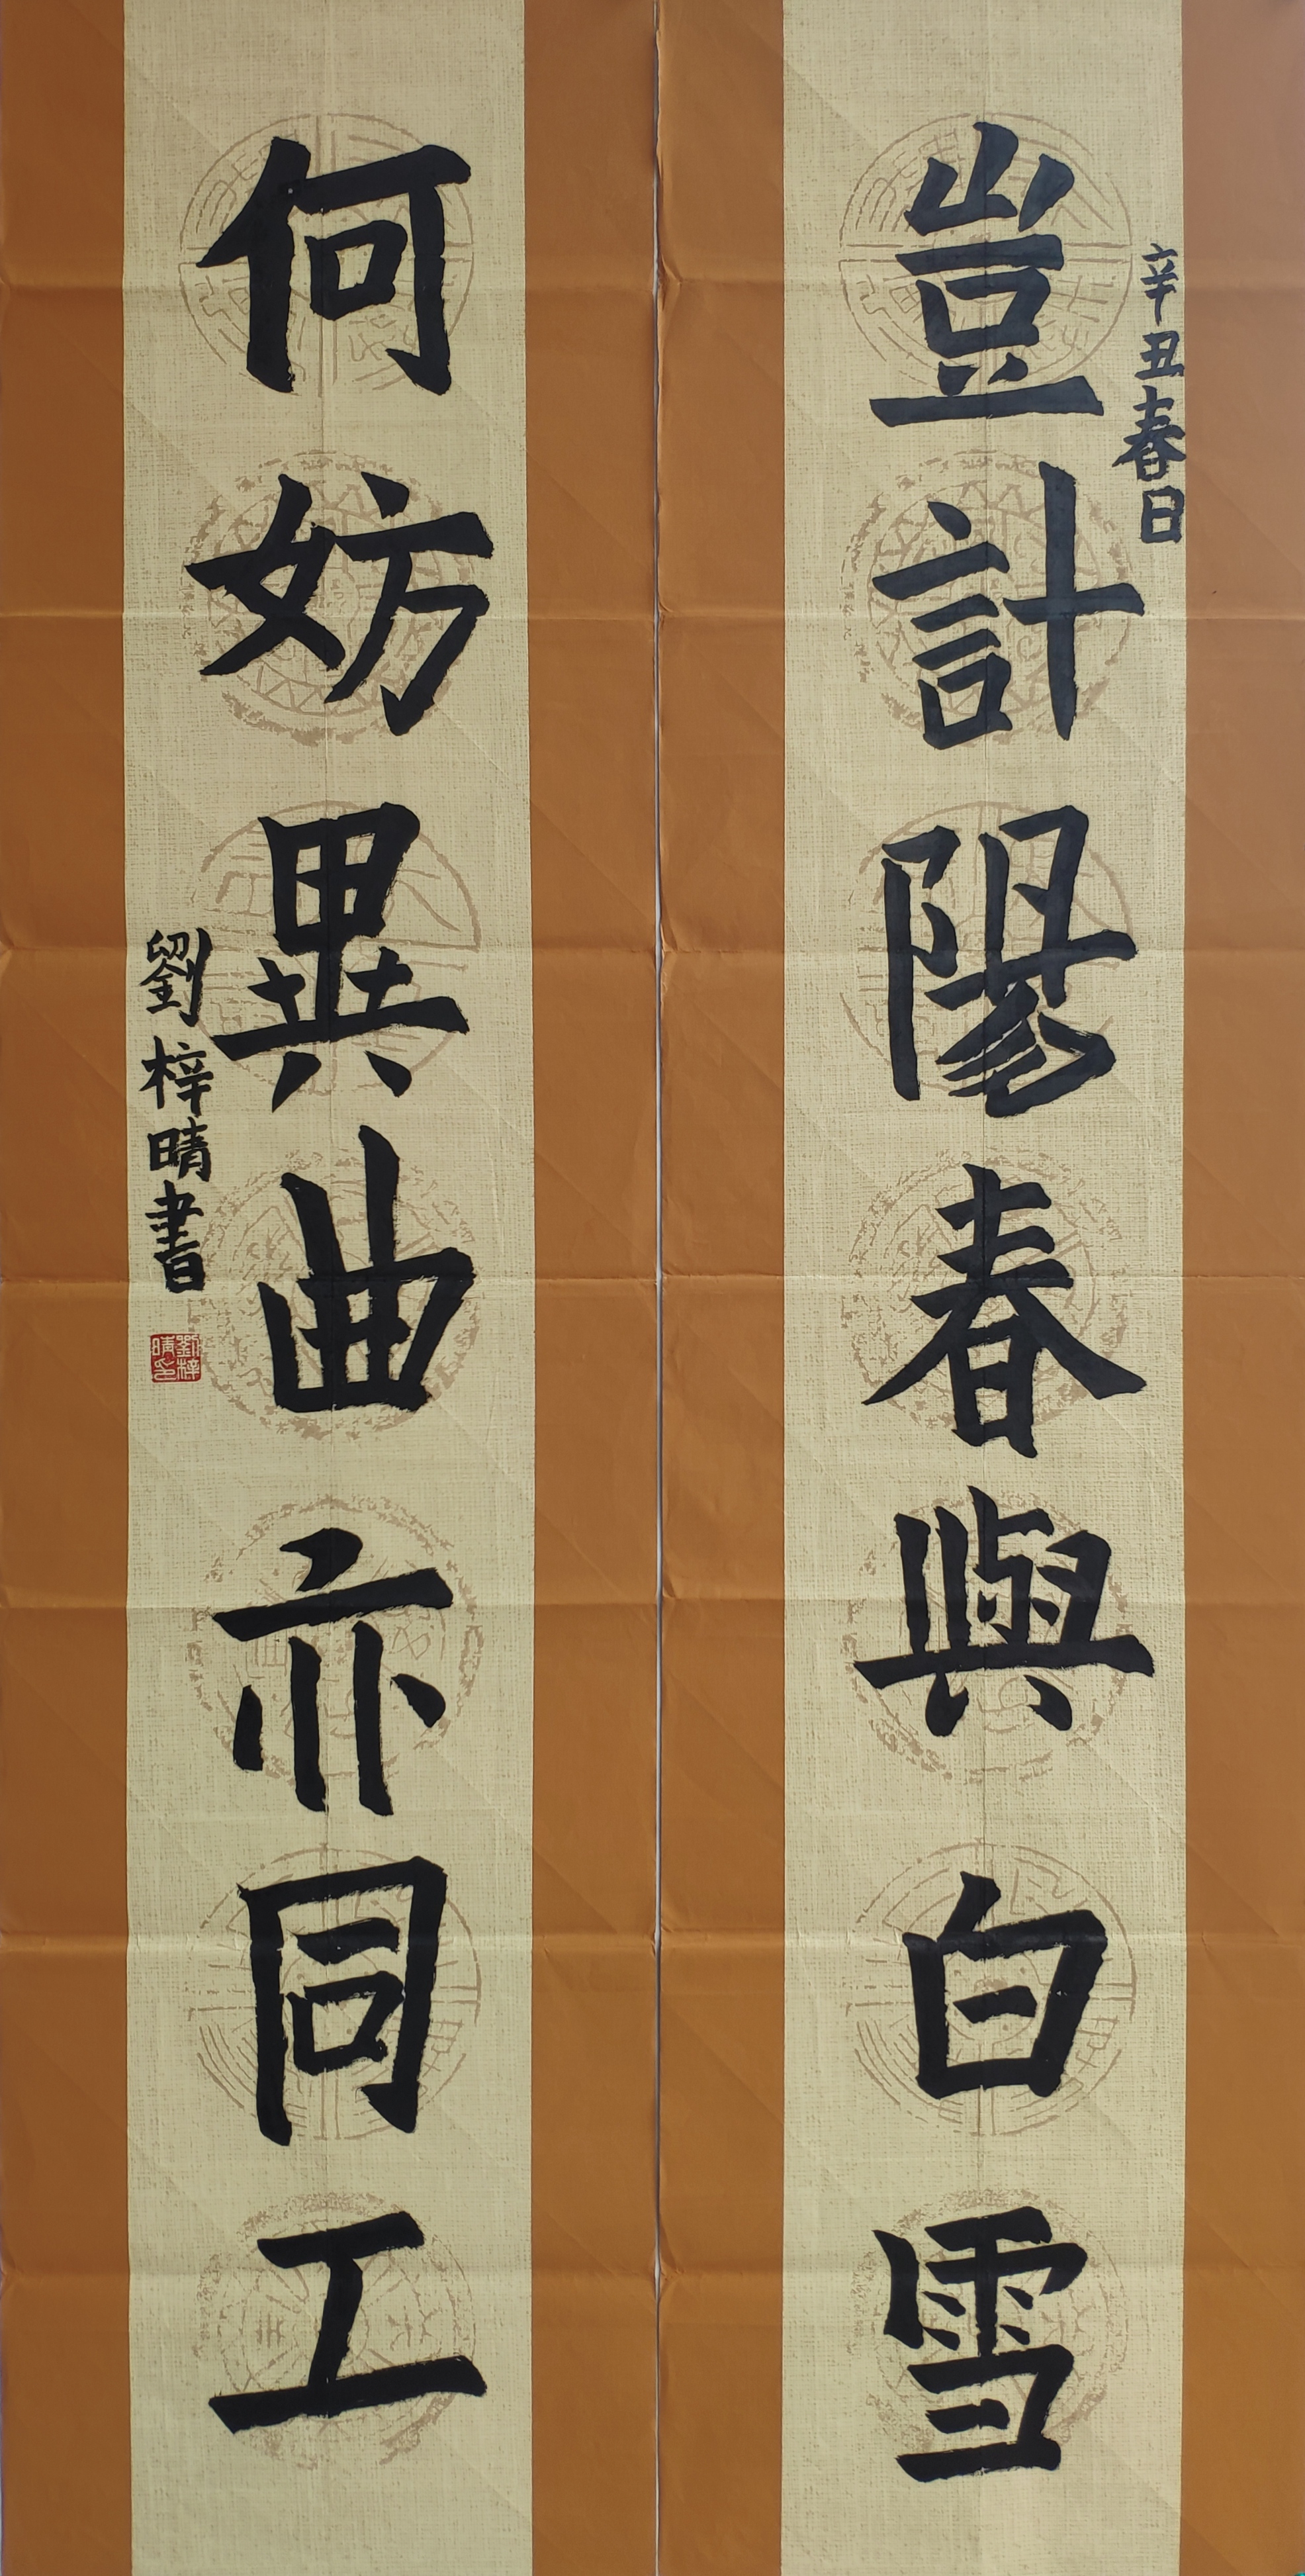 辛丑春日
豈計陽春與白雪
何妨異曲亦同工
劉梓晴書
劉梓
晴印